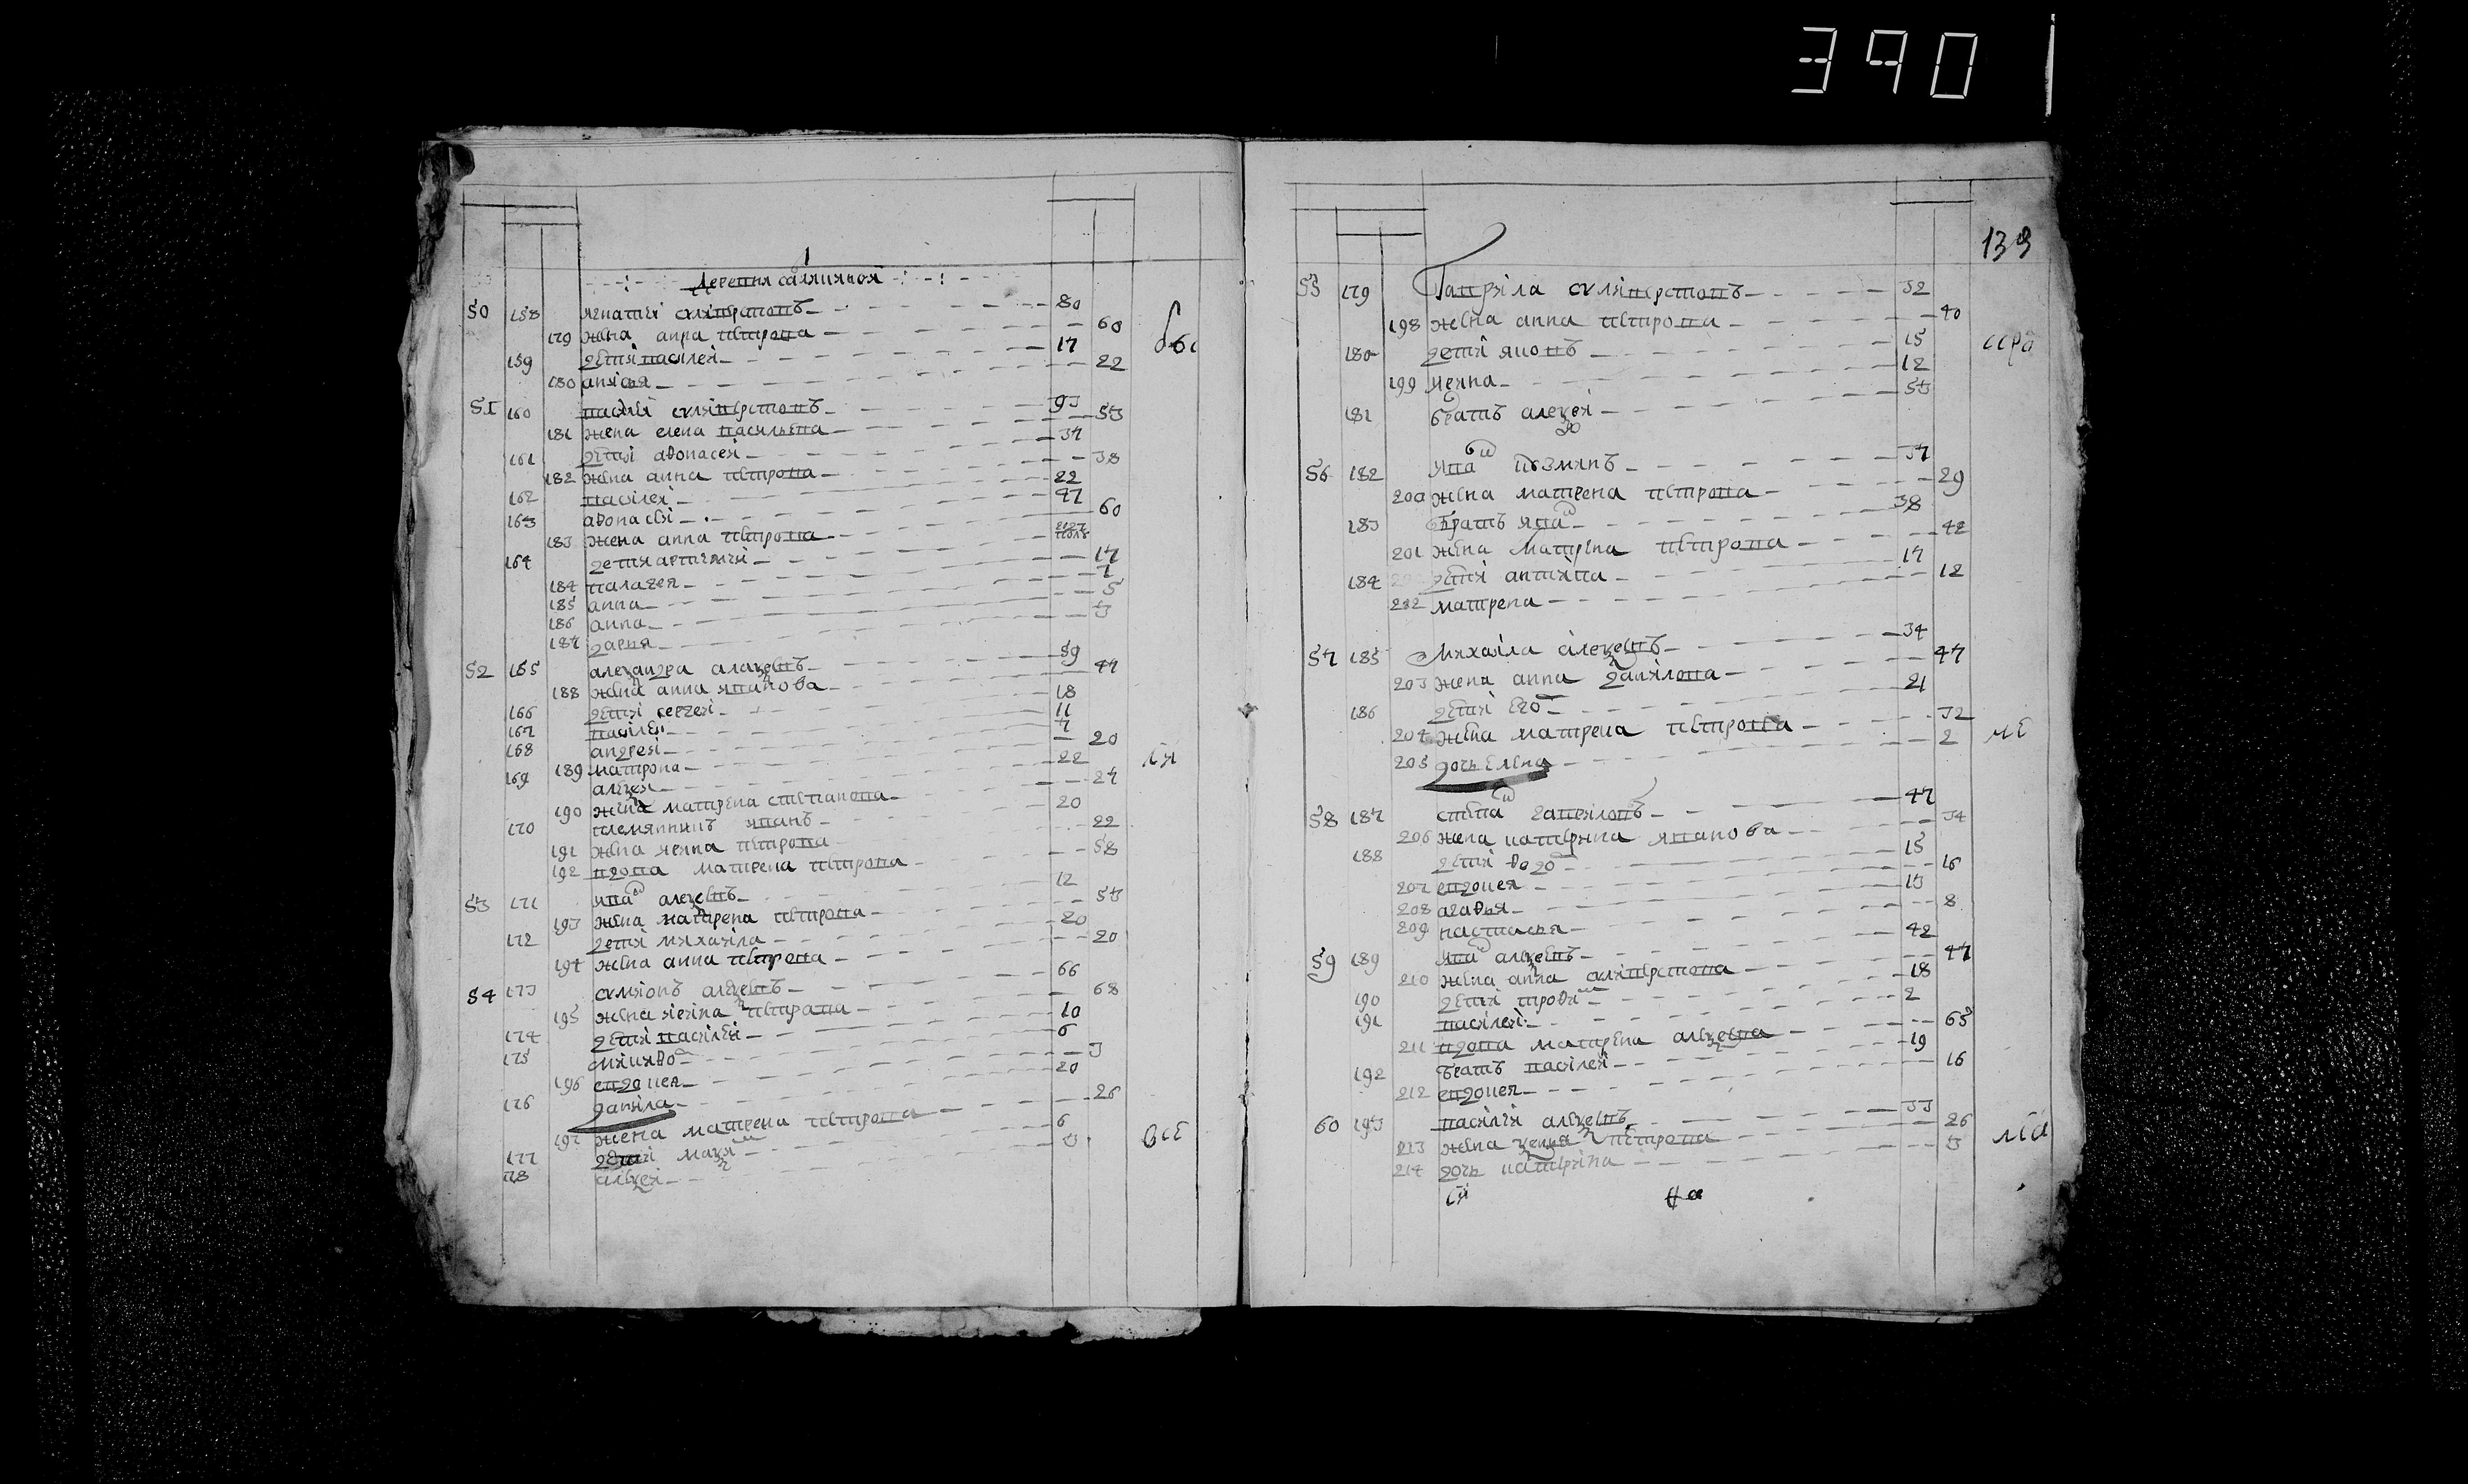 3901
139
Деревня
50 158 игнатеи силивестровъ 80
179 жена анна петрова 60
159 дети василеи 17
180 анисья 22
51 160 василеи силивестровъ 93
181 жена елена васильева 53
161 дети афонасеи 37
182 жена анна петрова 38
162 василеи 22
163 афонасеи 47
183 жена анна петрова 60
164 дети артемеи
184 палагея 17
185 анна 7
186 анна 5
187 дарья 3
52 165 александра алексеевъ 59
188 жена анна иванова 47
166 дети сергеи 18
167 василеи 11
168 андреи 7
189 матрона 20
169 алексеи 22
190 жена матрена степанова 27
170 племянникъ иванъ 20
191 жена ирина петрова 22
192 вдова матрена петрова 58
53 171 ива алексеевъ 12
193 жена матрена петрова 53
172 дети михаила 20
194 жена анна петрова 20
54 173 симионъ алексеевъ 66
195 жена ирина петрова 68
174 дети василеи 10
175 6
196 евдокея 3
176 данила 20
197 жена матрена петрова 26
177 дети макси 6
178 алексеи 3
все
55 179 Гаврила силивестровъ 52
198 жена анна петрова 40
180 дети яковъ 15
199 ирина 12
181 братъ алексеи 53
56 182 ива козминъ 37
200 жена матрена петрова 29
183 братъ ива 38
201 жена матрена петрова 42
184 дети антипа 17
202 матрена 12
57 185 Михаила алексеевъ 34
203 жена анна данилова 47
186 дети его 21
204 жена матрена петрова 32
205 дочь елена 2
58 187 степа гавриловъ 47
206 жена катерина иванова 34
188 дети федо 15
207 евдокея 16
208 агафья 13
209 настасья 8
59 189 ива алексеевъ 42
210 жена анна силивестрова 47
190 дети трофи 18
191 василеи 2
211 вдова матрена алексеева 65
192 братъ василеи 19
212 евдокея 16
60 193 василеи алексеевъ 33
213 жена петрова 26
214 дочь катерина 3